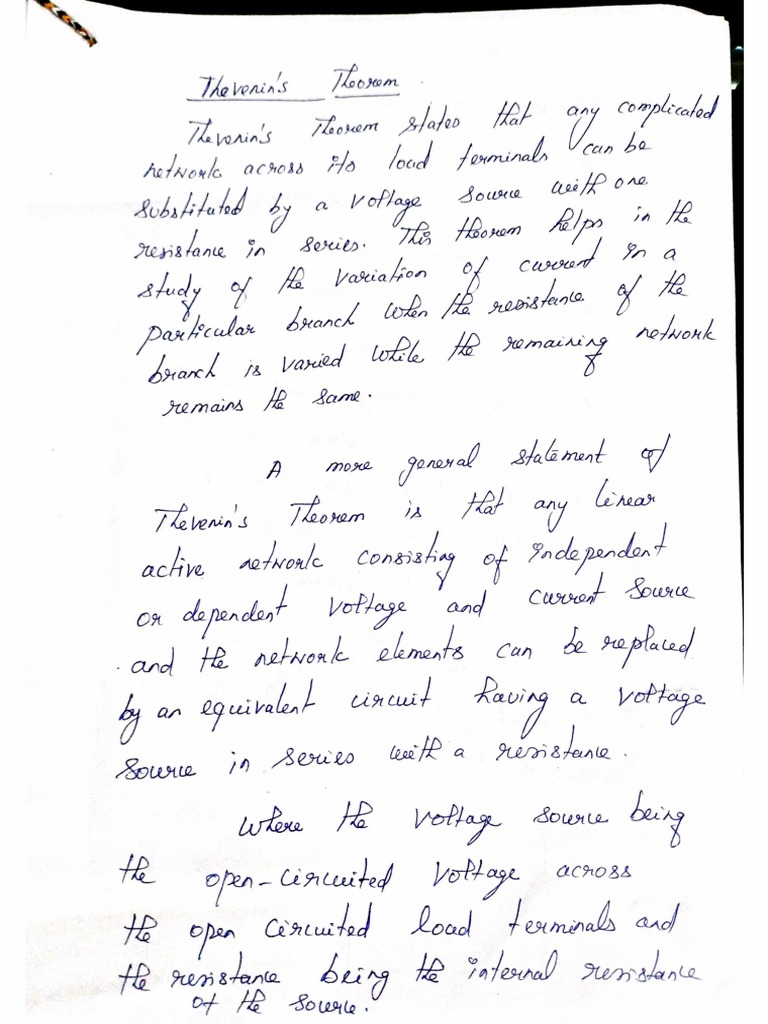 Thevenin's Theorem.
Thevenin's Theorem states that any complicated
network across its load terminals can be
substituted by a voltage source with one
resistance in series. This theorem helps in the
study of the variation of current in a
particular branch when the resistance of the
branch is varied while the remaining network
remains the same.
A more general statement of
Thevenin's Theorem is that any linear
active network consisting of independent
or dependent voltage and current source
and the network elements can be replaced
by an equivalent circuit having a voltage
source in series with a resistance.
Where the voltage source being
the open-circuited voltage across
the open circuited load terminals and
the resistance being the internal resistance
of the source.